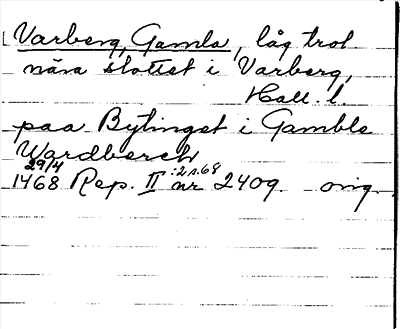 Varberg, Gamla, låg trol.
nära slottet i Varberg,
Hall. l.
paa Bytinget i Gamble
Wardberch
29/4 :2 s. 68
1468 Rep. II nr 2409. orig.